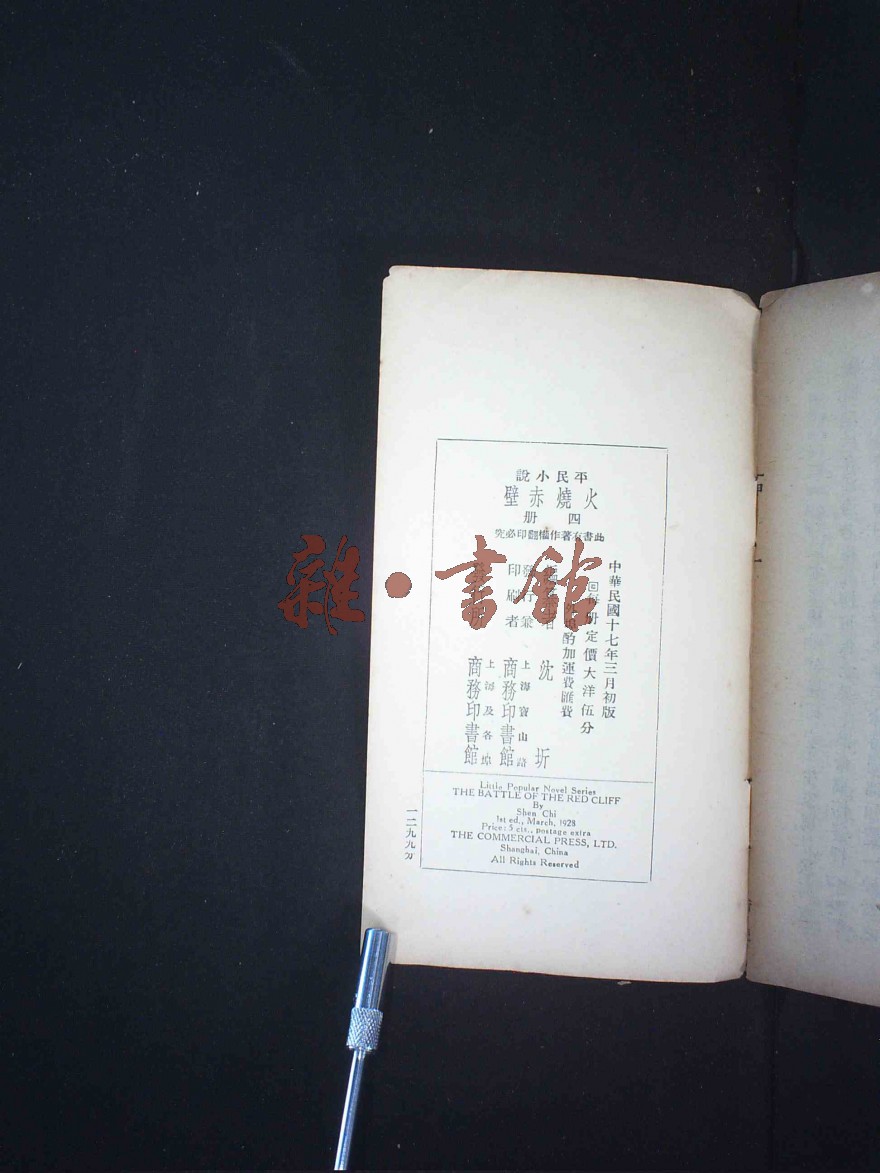 平民小說
火燒赤壁
四册
此書有著作權翻印必究
中華民國十七年三月初版
每册定價大洋伍分
酌加運費匯費
沈圻
發行兼
印刷者
上海寶山路
商務印書館
上海及各埠
商務印書館
Little Popular Novel Series
THE BATTLE OF THE RED CLIFF
By
Shen Chi
1st ed., March, 1928
Price: 5 cts., postage extra
THE COMMERCIAL PRESS, LTD.
Shanghai, China
All Rights Reserved
一二九九分
雜·書館